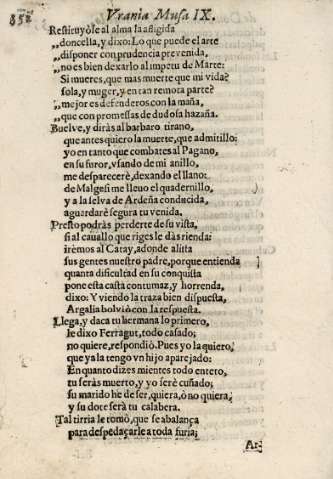 852
Vrania Musa IX.
Restituyòse al alma la afligida
„doncella, y dixo: Lo que puede el arte
„disponer con prudencia prevenida,
„no es bien dexarlo al impetu de Marte:
Si mueres, que mas muerte que mi vida?
sola, y muger, y en tan remota parte?
„mejor es defenderos con la maña,
„que con promessas de dudosa hazaña.
Buelve, y diràs al barbaro tirano,
que antes quiero la muerte, que admitillo:
yo en tanto que combates al Pagano,
en su furor, vsando de mi anillo,
me desparecerè, dexando el llano:
de Malgesi me lleuo el quadernillo,
y a la selva de Ardeña conducida,
aguardarè segura tu venida.
Presto podràs perderte de su vista,
si al cauallo que riges le dàs rienda:
irèmos al Catay, adonde alista
sus gentes nuestro padre, porque entienda
quanta dificultad en su conquista
pone esta casta contumaz, y horrenda,
dixo: Y viendo la traza bien dispuesta,
Argalia bolviò con la respuesta.
Llega, y daca tu hermana lo primero,
le dixo Ferragut, todo casado;
no quiere, respondiò. Pues yo la quiero,
que ya la tengo vn hijo aparejado:
En quanto dizes mientes todo entero,
tu seràs muerto, y yo serè cuñado;
su marido he de ser, quiera, ò no quiera,
y su dote serà tu calabera.
Tal tirria le tomò, que se abalança
para despedaçarle a toda furia;
Ar-